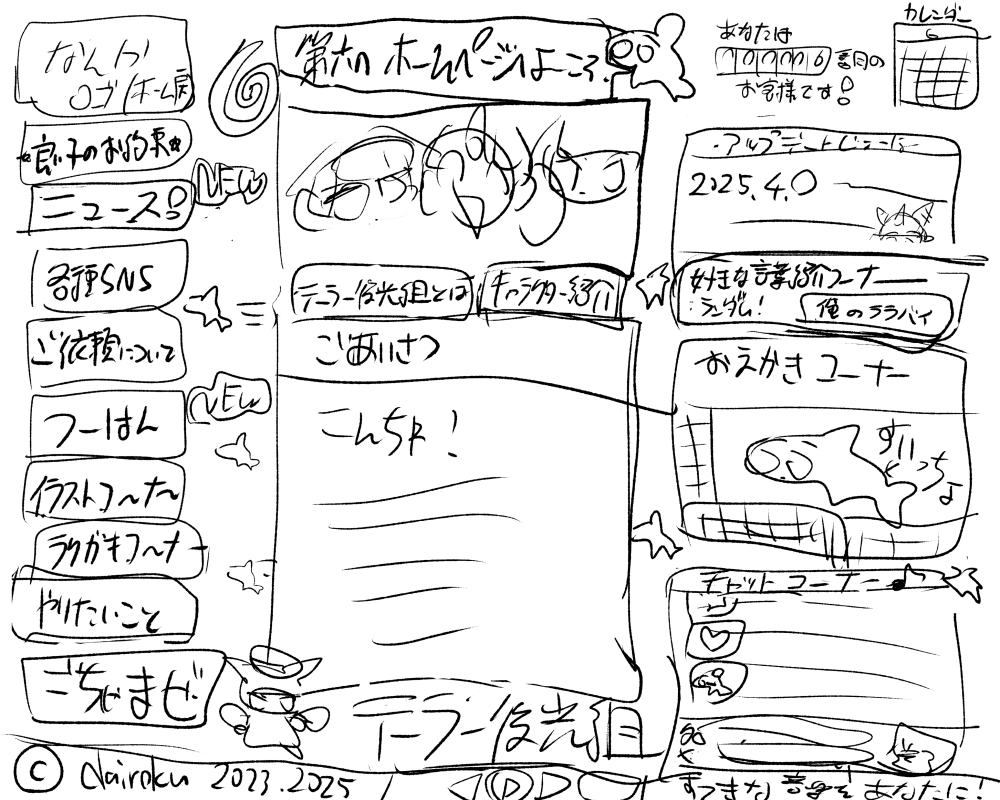 なんか
ロゴ/ホーム戻
良い子のお約束
ニュース!
NEW
各種SNS
ご依頼について
つーはん
NEW
イラストコ〜ナ〜
ラクガキコ〜ナー
やりたいこと
ごちゃまぜ
© dairoku 2023.2025
第六ホームページへようこそ!
テーラー後光組とは
キャラクター紹介
ごあいさつ
こんちゃ!
テーラー後光組
あなたは
番目の
お客様です!
カレンダー
6
アップデートじょーほー
2025.4.0
好きな言葉紹介コーナー
ランダム!
俺のララバイ
おえかきコーナー
すいすいっち
チャットコーナー
すてきな音楽をあなたに!